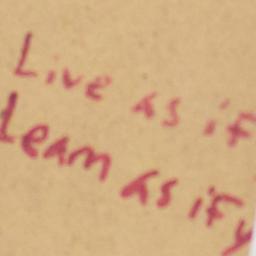 Live as if
Learn as if
y